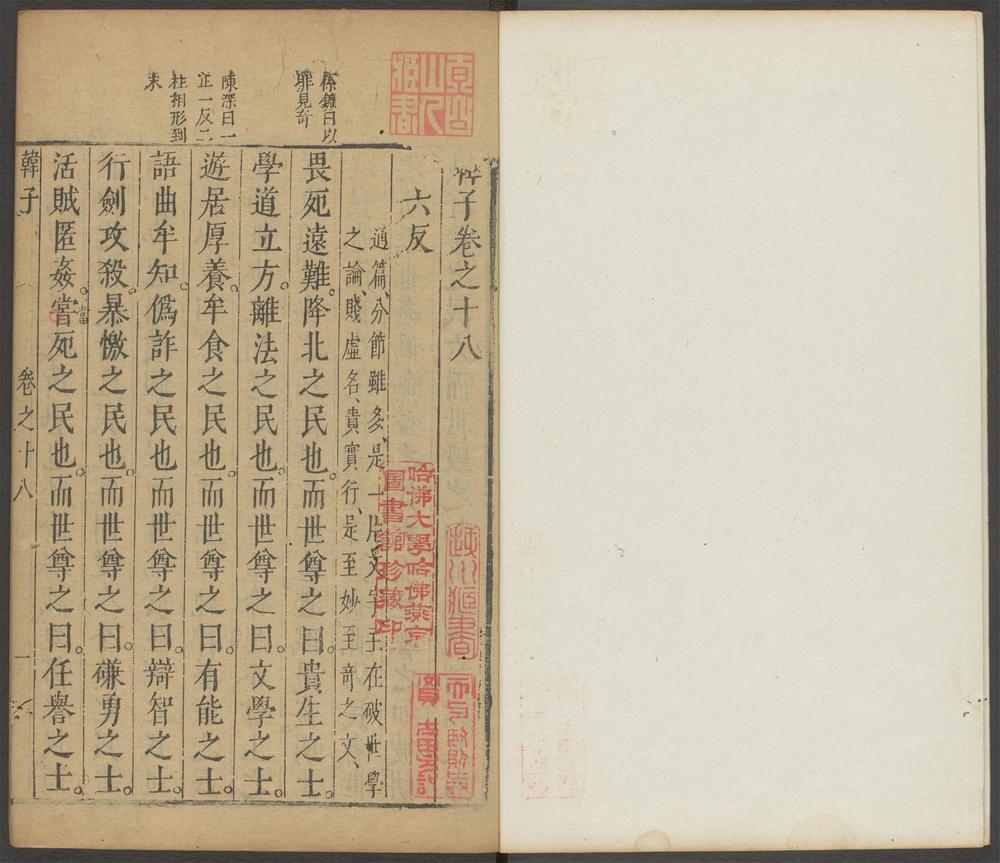 韓子卷之十八
六反
通篇、分節雖多、是一片文字、主在破世學
之論、賤虛名、貴實行、是至妙至奇之文、
畏死遠難。降北之民也。而世尊之曰。貴生之士。
學道立方。離法之民也。而世尊之曰。文學之士。
遊居厚養。牟食之民也。而世尊之曰。有能之士。
語曲牟知。偽詐之民也。而世尊之曰。辯智之士。
行劍攻殺。暴憿之民也。而世尊之曰。磏勇之士。
活賊匿姦。當死之民也。而世尊之曰。任譽之士。
當
孫鑛曰以
罪見奇
陳深曰一
正一反二
柱相形到
末
韓子
卷之十八
一
哈佛大學哈佛燕京
圖書館珍藏印